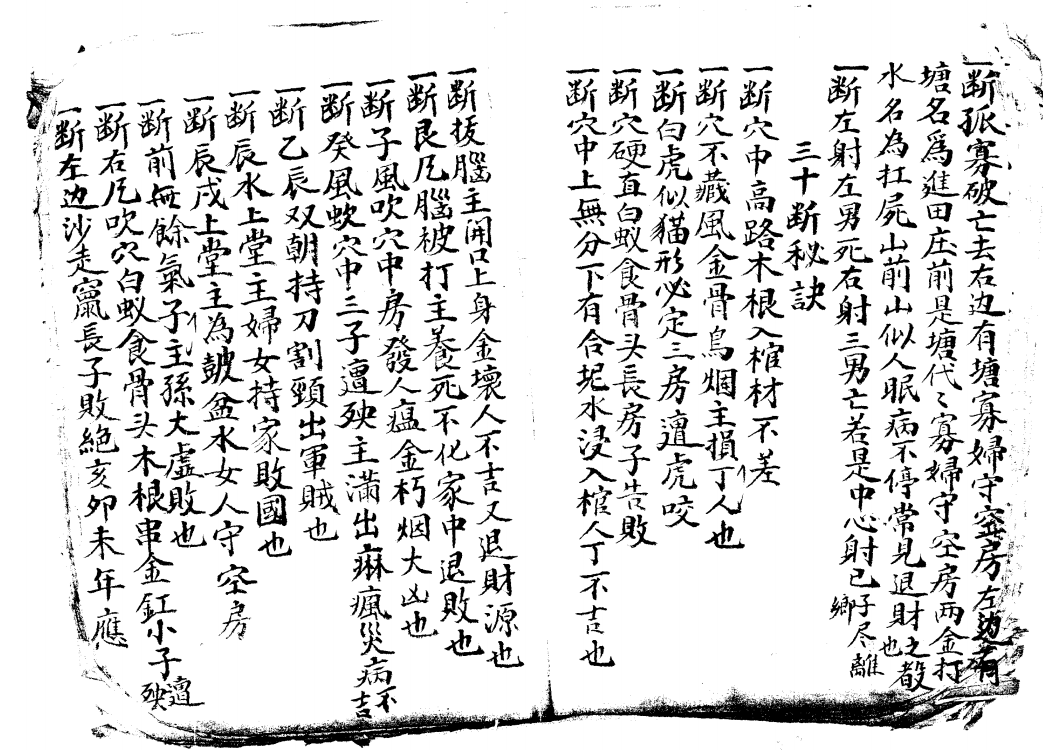 一断孤寡破亡去右边有塘寡婦守空房左边有
塘名為進田庄前是塘代〻寡婦守空房两金打
水名為扛屍山前山似人眠病不停常見退財之
一断左射左男死右射三男亡若是中心射已子尽離鄉
三十断秘訣
一断穴中高路木根入棺材不差
一断穴不藏風金骨烏烟主損丁人也
一断白虎似猫形必定三房遭虎咬
一断穴硬直白蚁食骨头長房子告敗
一断穴中上無分下有合坭水浸入棺人丁不吉也
一断拔腦主開口上身金壞人不吉又退財源也
一断艮凡腦被打主養死不化家中退敗也
一断子風吹穴中房發人瘟金朽烟大凶也
一断癸風吹穴中三子遭殃主滿出痳瘋災病不吉
一断乙辰双朝持刀割頸出軍賊也
一断辰水上堂主婦女持家敗國也
一断辰戌上堂主為皷盆水女人守空房
一断前無餘氣子主孫大虛敗也
一断右凡吹穴白蚁食骨头木根串金釭小子遭殃
一断左边沙走竄長子敗絕亥卯未年應